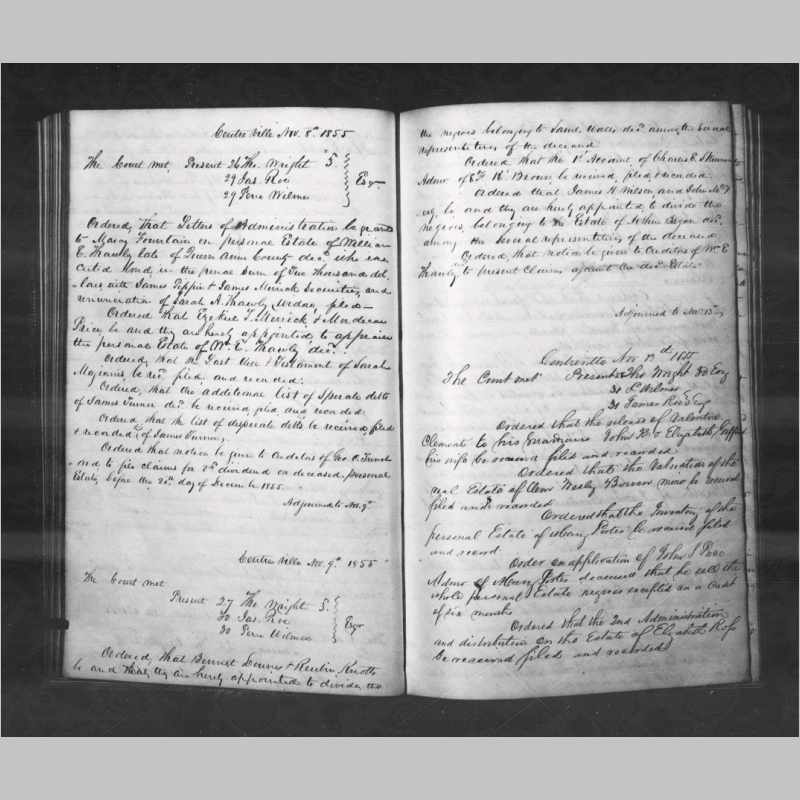 Centre Ville Nov. 8th 1855
The Court met. Present 26 Tho. Wright 5
29 Jas. Roe
29 Pere Wilmer
Esqr
Ordered, That Letters of Administration be granted
to Mary Fountain on personal Estate of William
E. Thawly late of Queen Anns County decd. who exe-
cuted bond in the penal Sum of Thousand dol-
lars with James Pippin & James Merrick Securities, and
renunciation of Sarah A. Thawly widow, filed—
Ordered that Ezekiel T. Merrick & Mordecai
Price be and they are hereby appointed to appraise
the personal Estate of W. E. Thawly decd.
Ordered, that the Last Will & Testament of Sarah
be recd. filed and recorded.
Ordered, that the additional list of Sperate debts
of James Turner decd. be received, filed and recorded
Ordered that the list of desperate debts be received, filed
& recorded, of James Turner,
Ordered that notice be given to Creditors of Geo. C.
-ed to file claims for 2nd dividend on deceased, personal
Estate, before the 20th day of December 1855.
Adjourned to Nov. 9th
Centre Ville Nov. 9th 1855
The Court met
Present 27 Tho Wright 5.
30 Jas. Roe
30 Pere Wilmer
Esqr
Ordered, that Bennet Downes & Reubin Knotts
be and they are hereby appointed to divide, the
the negroes belonging to decd. among the several
representatives of the deceased
Ordered that the 1st Account of Charles
Admr of Brown be received, filed & recorded.
Ordered that James H. Wilson, and John
be and they are hereby appointed to divide the
negroes, belonging to the Estate of Arthur decd.
among the several representatives of the deceased
Ordered, that notice be given to Creditors of W. E
Thawly to present Claims against the decd. Estate.
Adjourned to Nov. 13th
Nov 13th 1855
The Court met Present Tho Wright Esq
30 P. Wilmer
31 James Roe Esq
Ordered that the release of
Clements to his guardians John & Elizabeth
his wife be received filed and recorded
Ordered that the Valuation of the
real Estate of Wesley minor be received
filed and recorded
Ordered that the Inventory of the
personal Estate of Mary Porter be received filed
and record
Order on application of John S
Admr of Mary Porter deceased that he sell the
whole personal Estate negroes excepted on a Credit
of six months
Ordered that the 2nd Administration
and distribution on the Estate of Elizabeth
be received filed and recorded